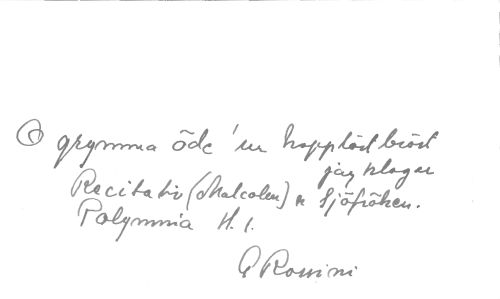 O grymma öde 'ur hopplöst bröst
jag klagar
Recitativ (Malcolm) u Sjöfröken.
Polymnia H. 1.
G Rossini